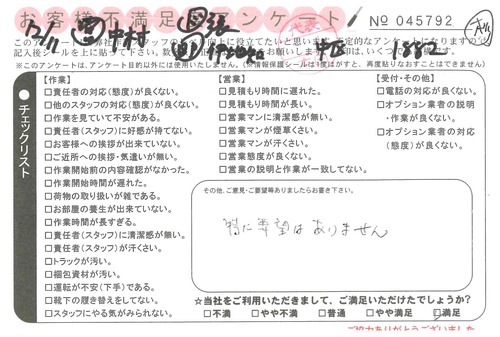 お客様不満足アンケート
No 045792
12/11 中村
【作業】
□責任者の対応(態度)が良くない。
□他のスタッフの対応(態度)が良くない。
□作業を見ていて不安がある。
□責任者(スタッフ)に好感が持てない。
□お客様への挨拶が出来ていない。
□ご近所への挨拶・気遣いが無い。
□作業開始前の内容確認がなかった。
□作業開始時間が遅れた。
□荷物の取り扱いが雑である。
□お部屋の養生が出来ていない。
□作業時間が長すぎる。
□責任者(スタッフ)に清潔感が無い。
□責任者(スタッフ)が汗くさい。
□トラックが汚い。
□梱包資材が汚い。
□運転が不安(下手)である。
□靴下の履き替えをしてない。
□スタッフにやる気がみられない。
【営業】
□見積もりに遅れた。
□見積もり時間が長い。
□営業マンに清潔感が無い。
□営業マンが煙草くさい。
□営業マンが汗くさい。
□営業態度が良くない。
□営業の説明と作業が一致してない。
【受付・その他】
□電話の対応が良くない。
□オプション業者の説明
・作業が良くない。
□オプション業者の対応
(態度)が良くない。
●チェックリスト
その他、ご意見・ご要望等ありましたらお書き下さい。
特に要望はありません
☆当社をご利用いただきまして、ご満足いただけたでしょうか?
□不満 □やや不満 □普通 □やや満足 □満足
ご協力ありがとうございました